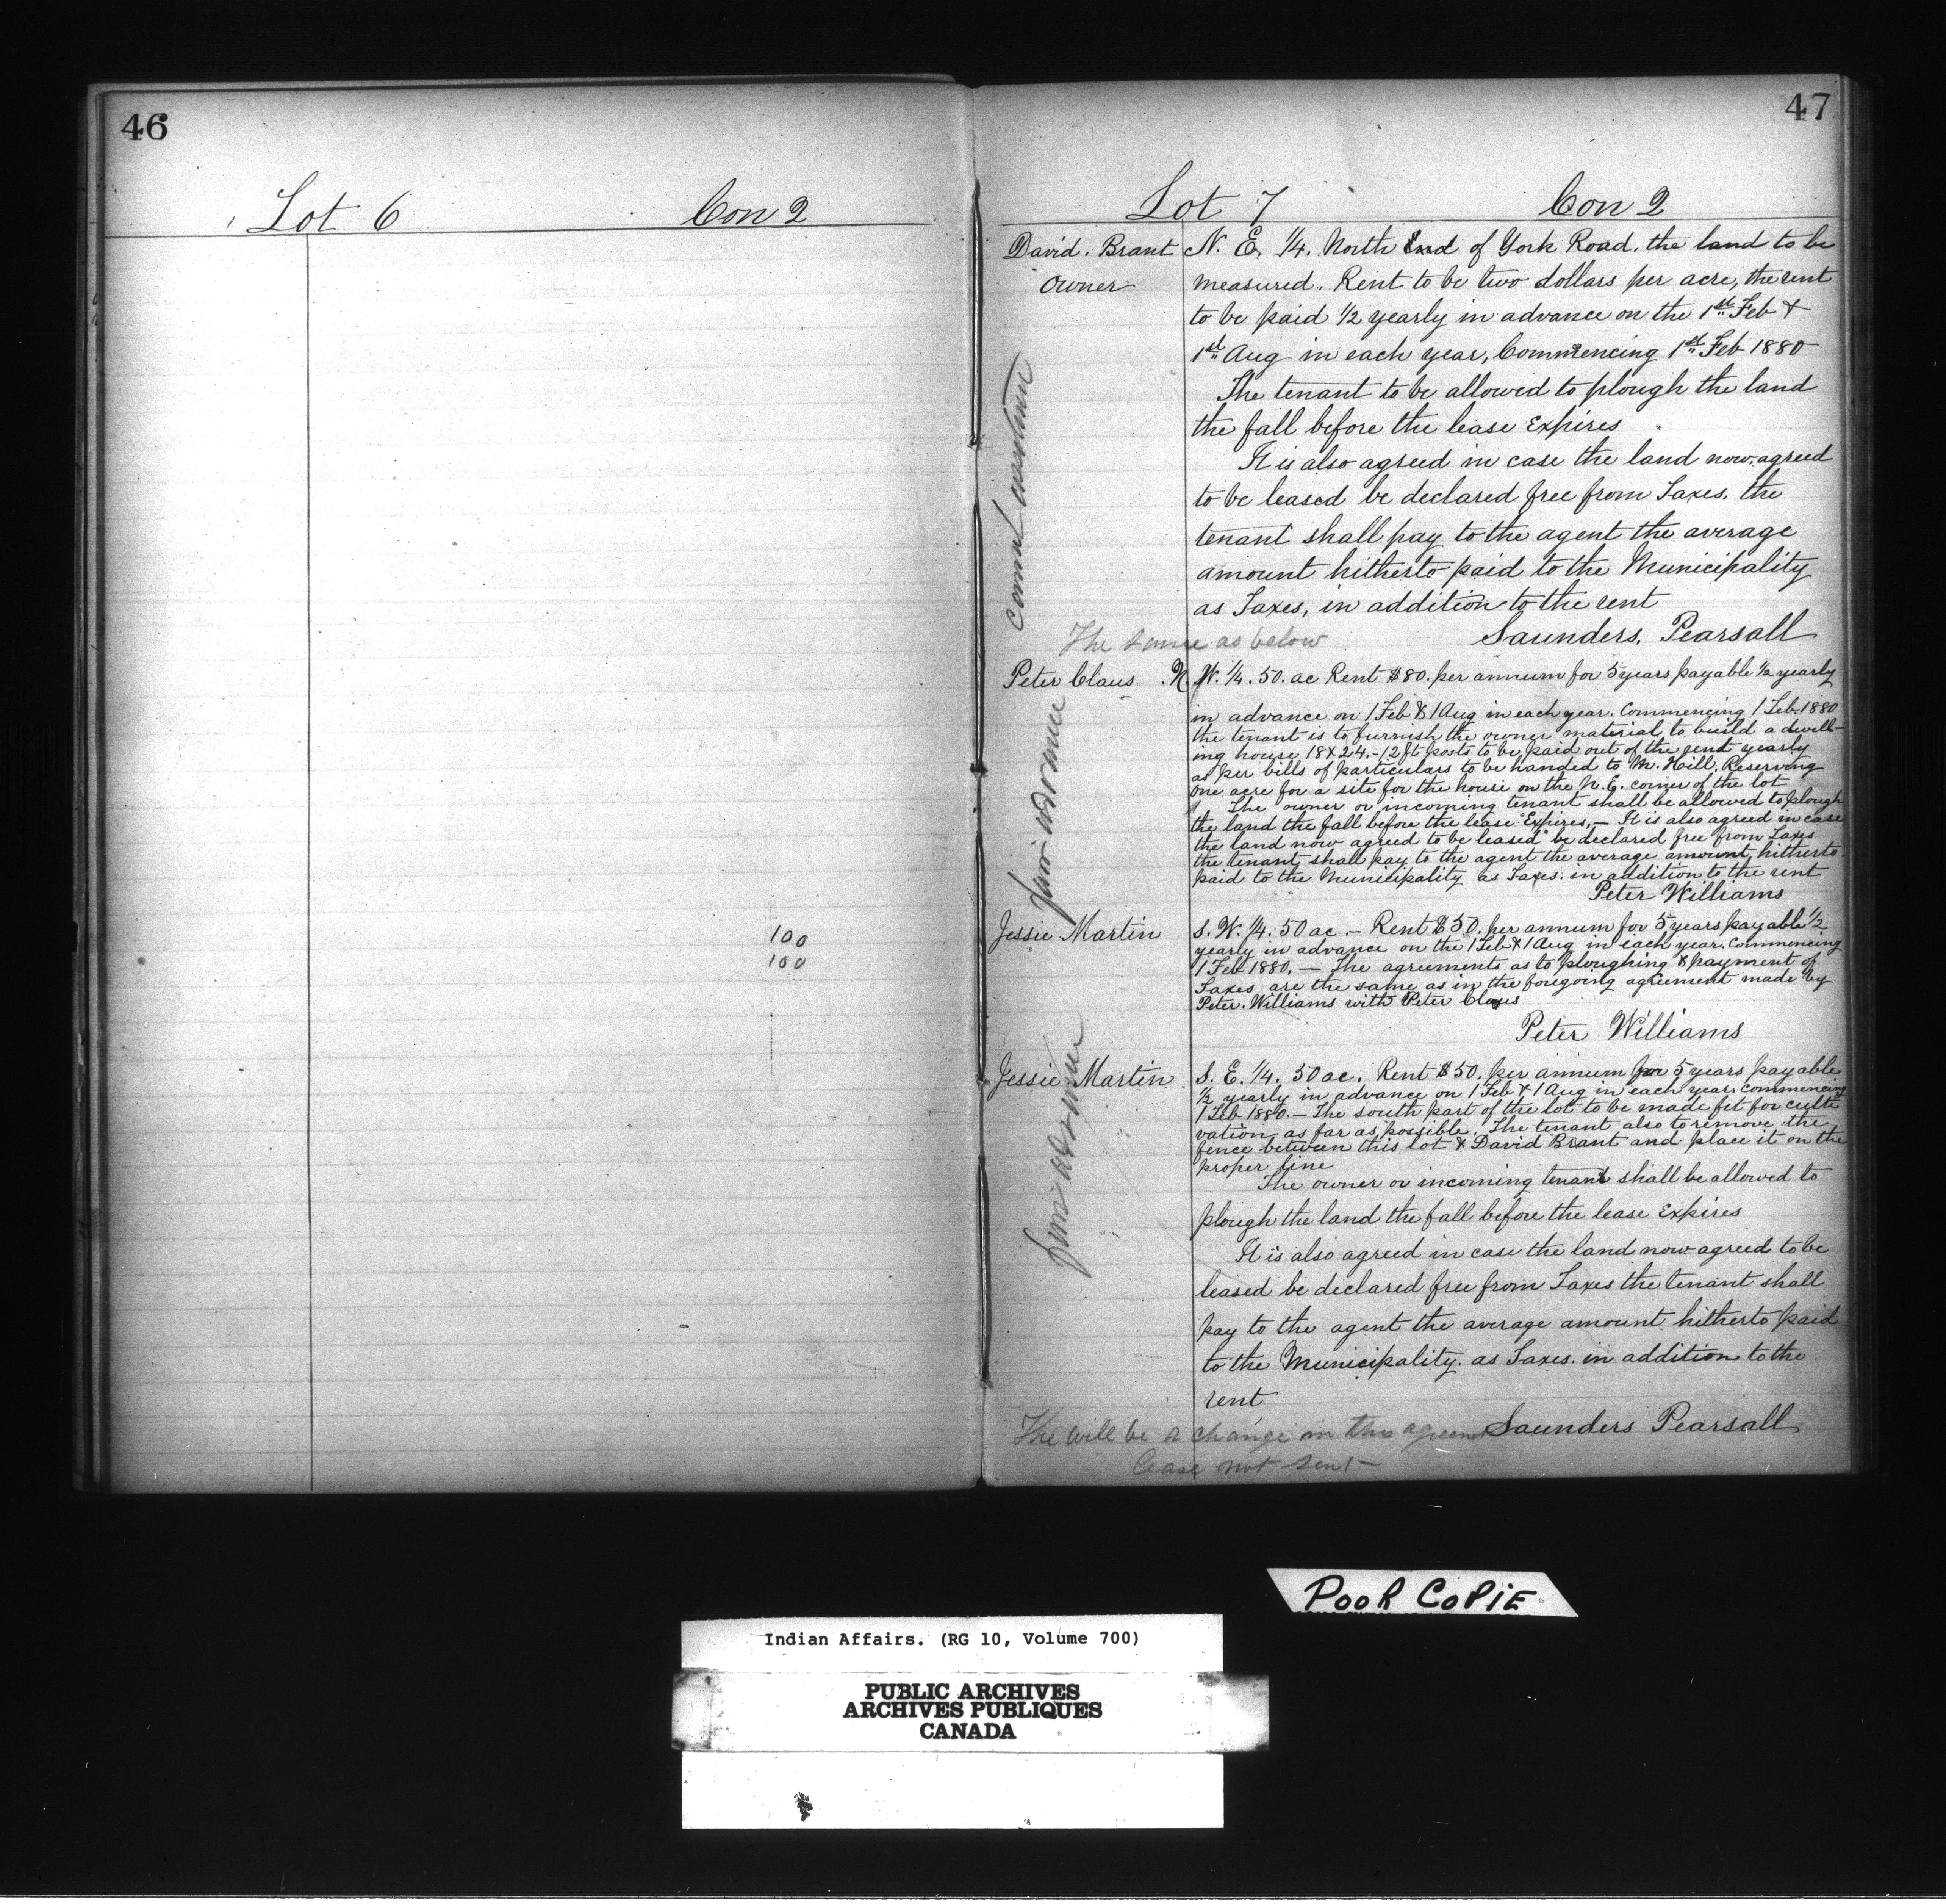 46
Lot 6 Con 2
100
100
47
Lot 7 Con 2
David. Brant N. E. 1/4. North End of York Road. the land to be
Owner measured. Rent to be two dollars per acre, the rent
to be paid 1/2 yearly in advance on the 1st Feb &
1st Aug in each year, Commencing 1st Feb 1880
The tenant to be allowed to plough the land
the fall before the lease Expires
It is also agreed in case the land now agreed
to be leased be declared free from Taxes. the
tenant shall pay to the agent the average
amount hitherto paid to the Municipality
as Taxes, in addition to the rent
Saunders. Pearsall
The same as below
Peter Claus N. W. 1/4. 50. ac Rent $80. per annum for 5 years payable 1/2 yearly
in advance on 1 Feb & 1 Aug in each year. Commencing 1 Feb. 1880
the tenant is to furnish the owner material to build a dwell-
ing house 18 X 24.-12 ft posts to be paid out of the rent yearly
as per bills of particulars to be handed to M. Hill. Reserving
one acre for a site for the house on the N. E. corner of the lot
The owner or incoming tenant shall be allowed to plough
the land the fall before the lease Expires.— It is also agreed in case
the land now agreed to be leased be declared free from Taxes
the tenant shall pay to the agent the average amount hitherto
paid to the Municipality as Taxes. in addition to the rent
Peter Williams
Jessie Martin S. W. 1/4. 50 ac.— Rent $50. per annum for 5 years payable 1/2
yearly in advance on the 1 Feb & 1 Aug in each year. Commencing
1 Feb 1880.— The agreements as to ploughing & payment of
Taxes are the same as in the foregoing agreement made by
Peter. Williams with Peter Claus
Peter Williams
Jessie Martin S. E. 1/4. 50 ac. Rent $50. per annum for 5 years payable
1/2 yearly in advance on 1 Feb & 1 Aug in each year. Commencing
1 Feb 1880.— The south part of the lot to be made fit for culti
vation as far as possible. The tenant also to remove the
fence between this lot & David Brant and place it on the
proper line
The owner or incoming tenant shall be allowed to
plough the land the fall before the lease Expires
It is also agreed in case the land now agreed to be
leased be declared free from Taxes the tenant shall
pay to the agent the average amount hitherto paid
to the Municipality. as Taxes. in addition to the
rent
Saunders Pearsall
The will be a change in this agreemt
lease not sent
POOR COPIE
Indian Affairs. (RG 10, Volume 700)
PUBLIC ARCHIVES
ARCHIVES PUBLIQUES
CANADA